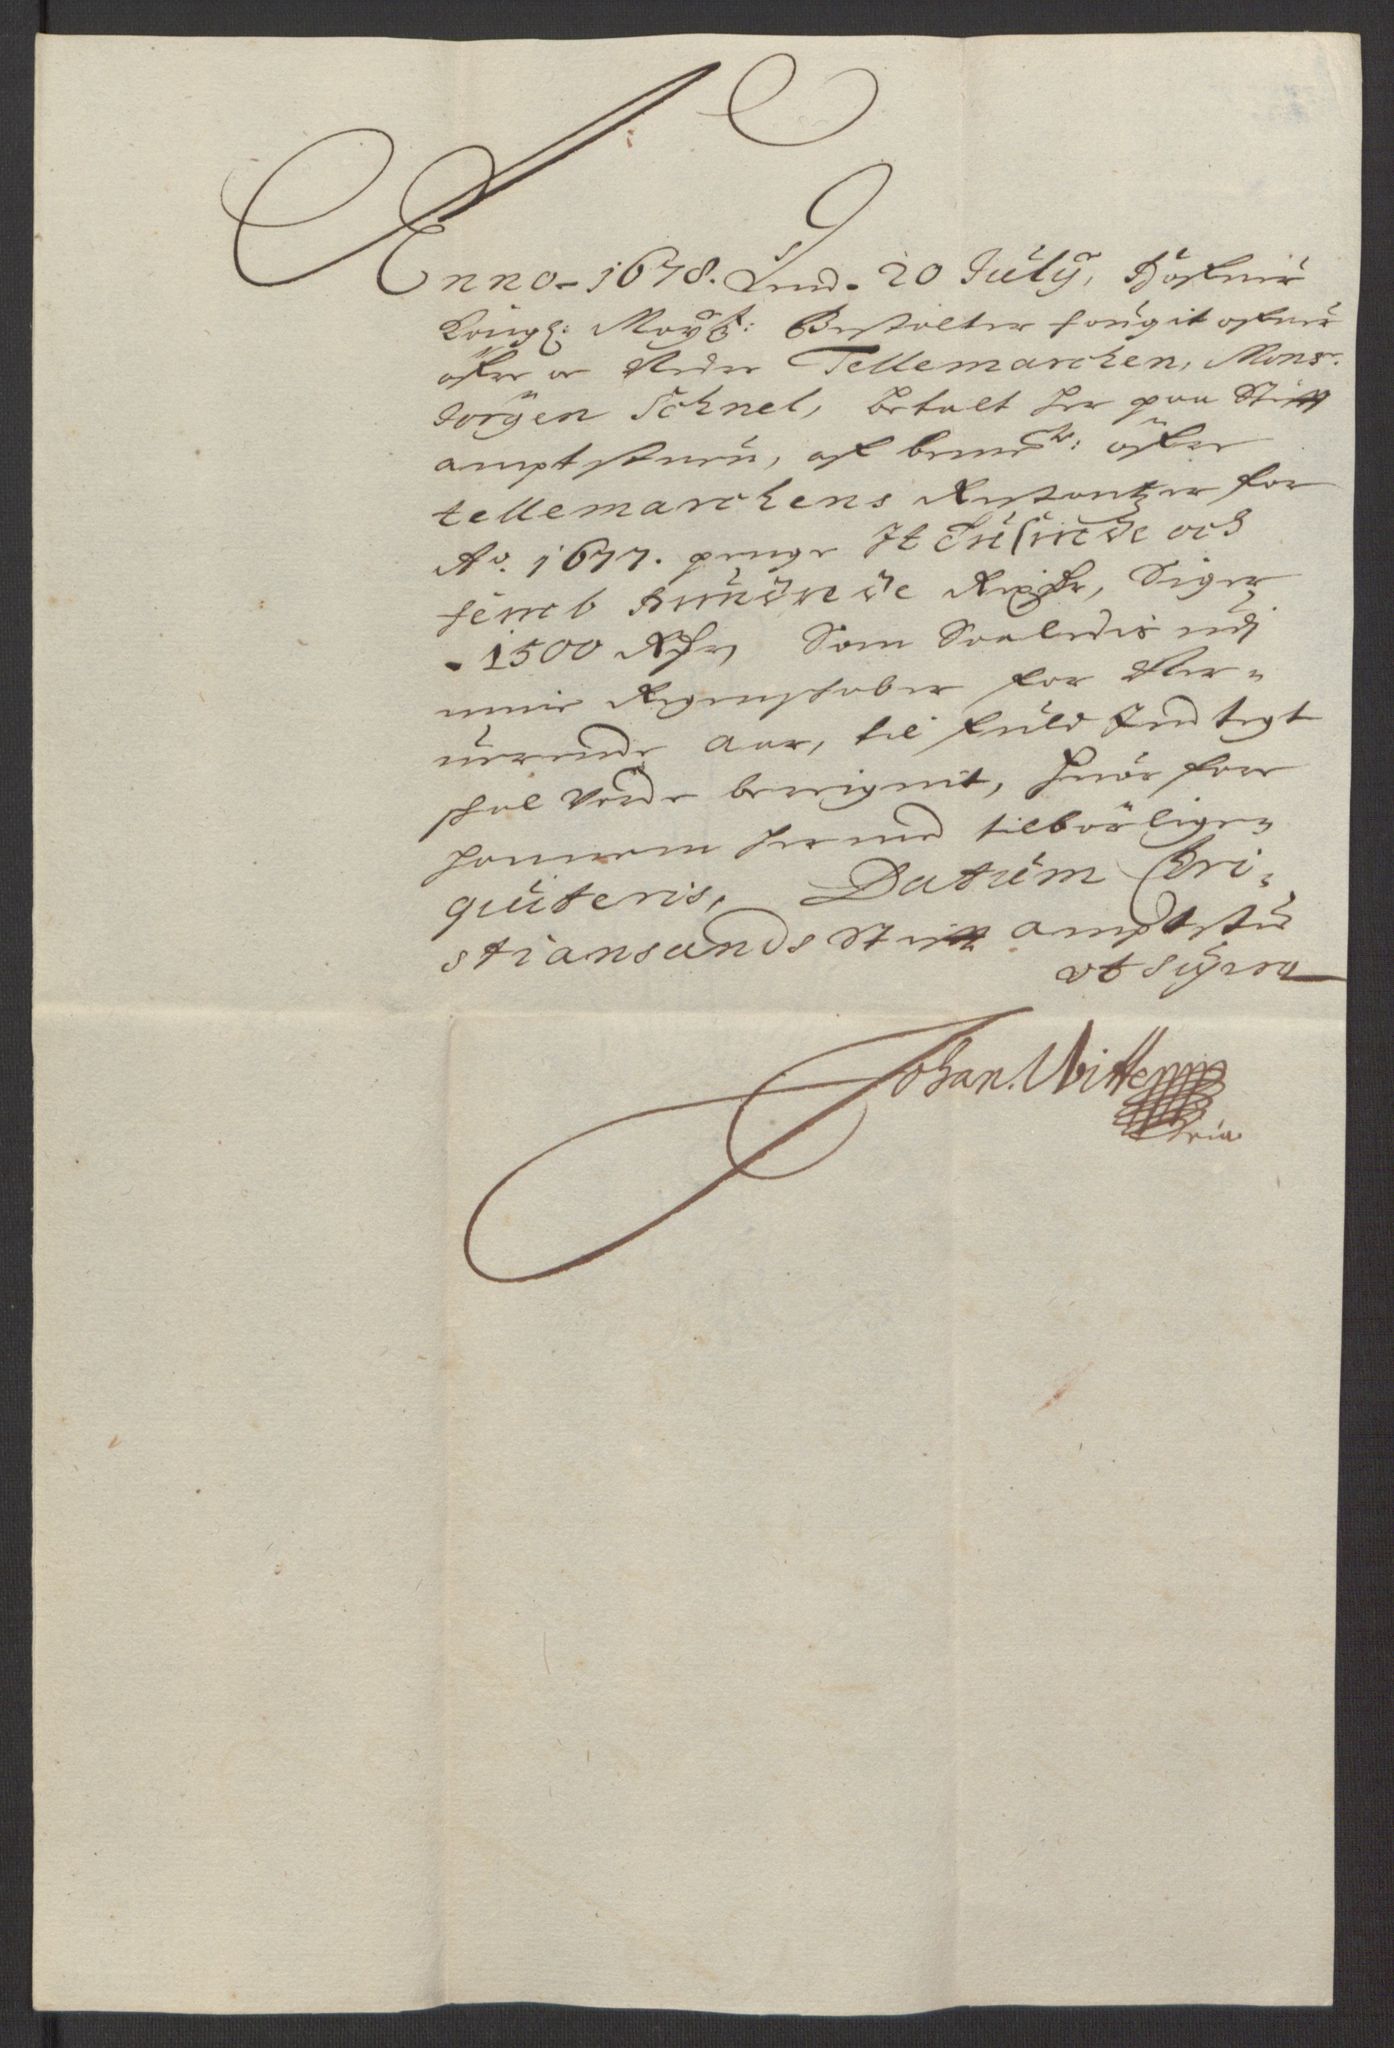 Anno 1678. Dend. 20 Julÿ, Hafuer
Kongl: Maÿtz: Bestalter fougit ofuer
öfre oc Nedre Tellemarchen, Mons.r
Jörgen Schnel, betalt her paa Stift
amptstuen, af bemte: öfre
tellemarchens Restantzer for
Ao. 1677. penge It Tusinde och
femb Hundrede Rixdr, Siger
- 1500 Rdr, Som Saaledis udj
mine Regenskaber for Ner-
uerende aar, til fuld Indtegt
skal vorde beregnit, huor for
hannem hermed tilbörligen
quiteris, Datum Chri-
stiansands Stift amptstue
ut supra
Johan. Witten
pria